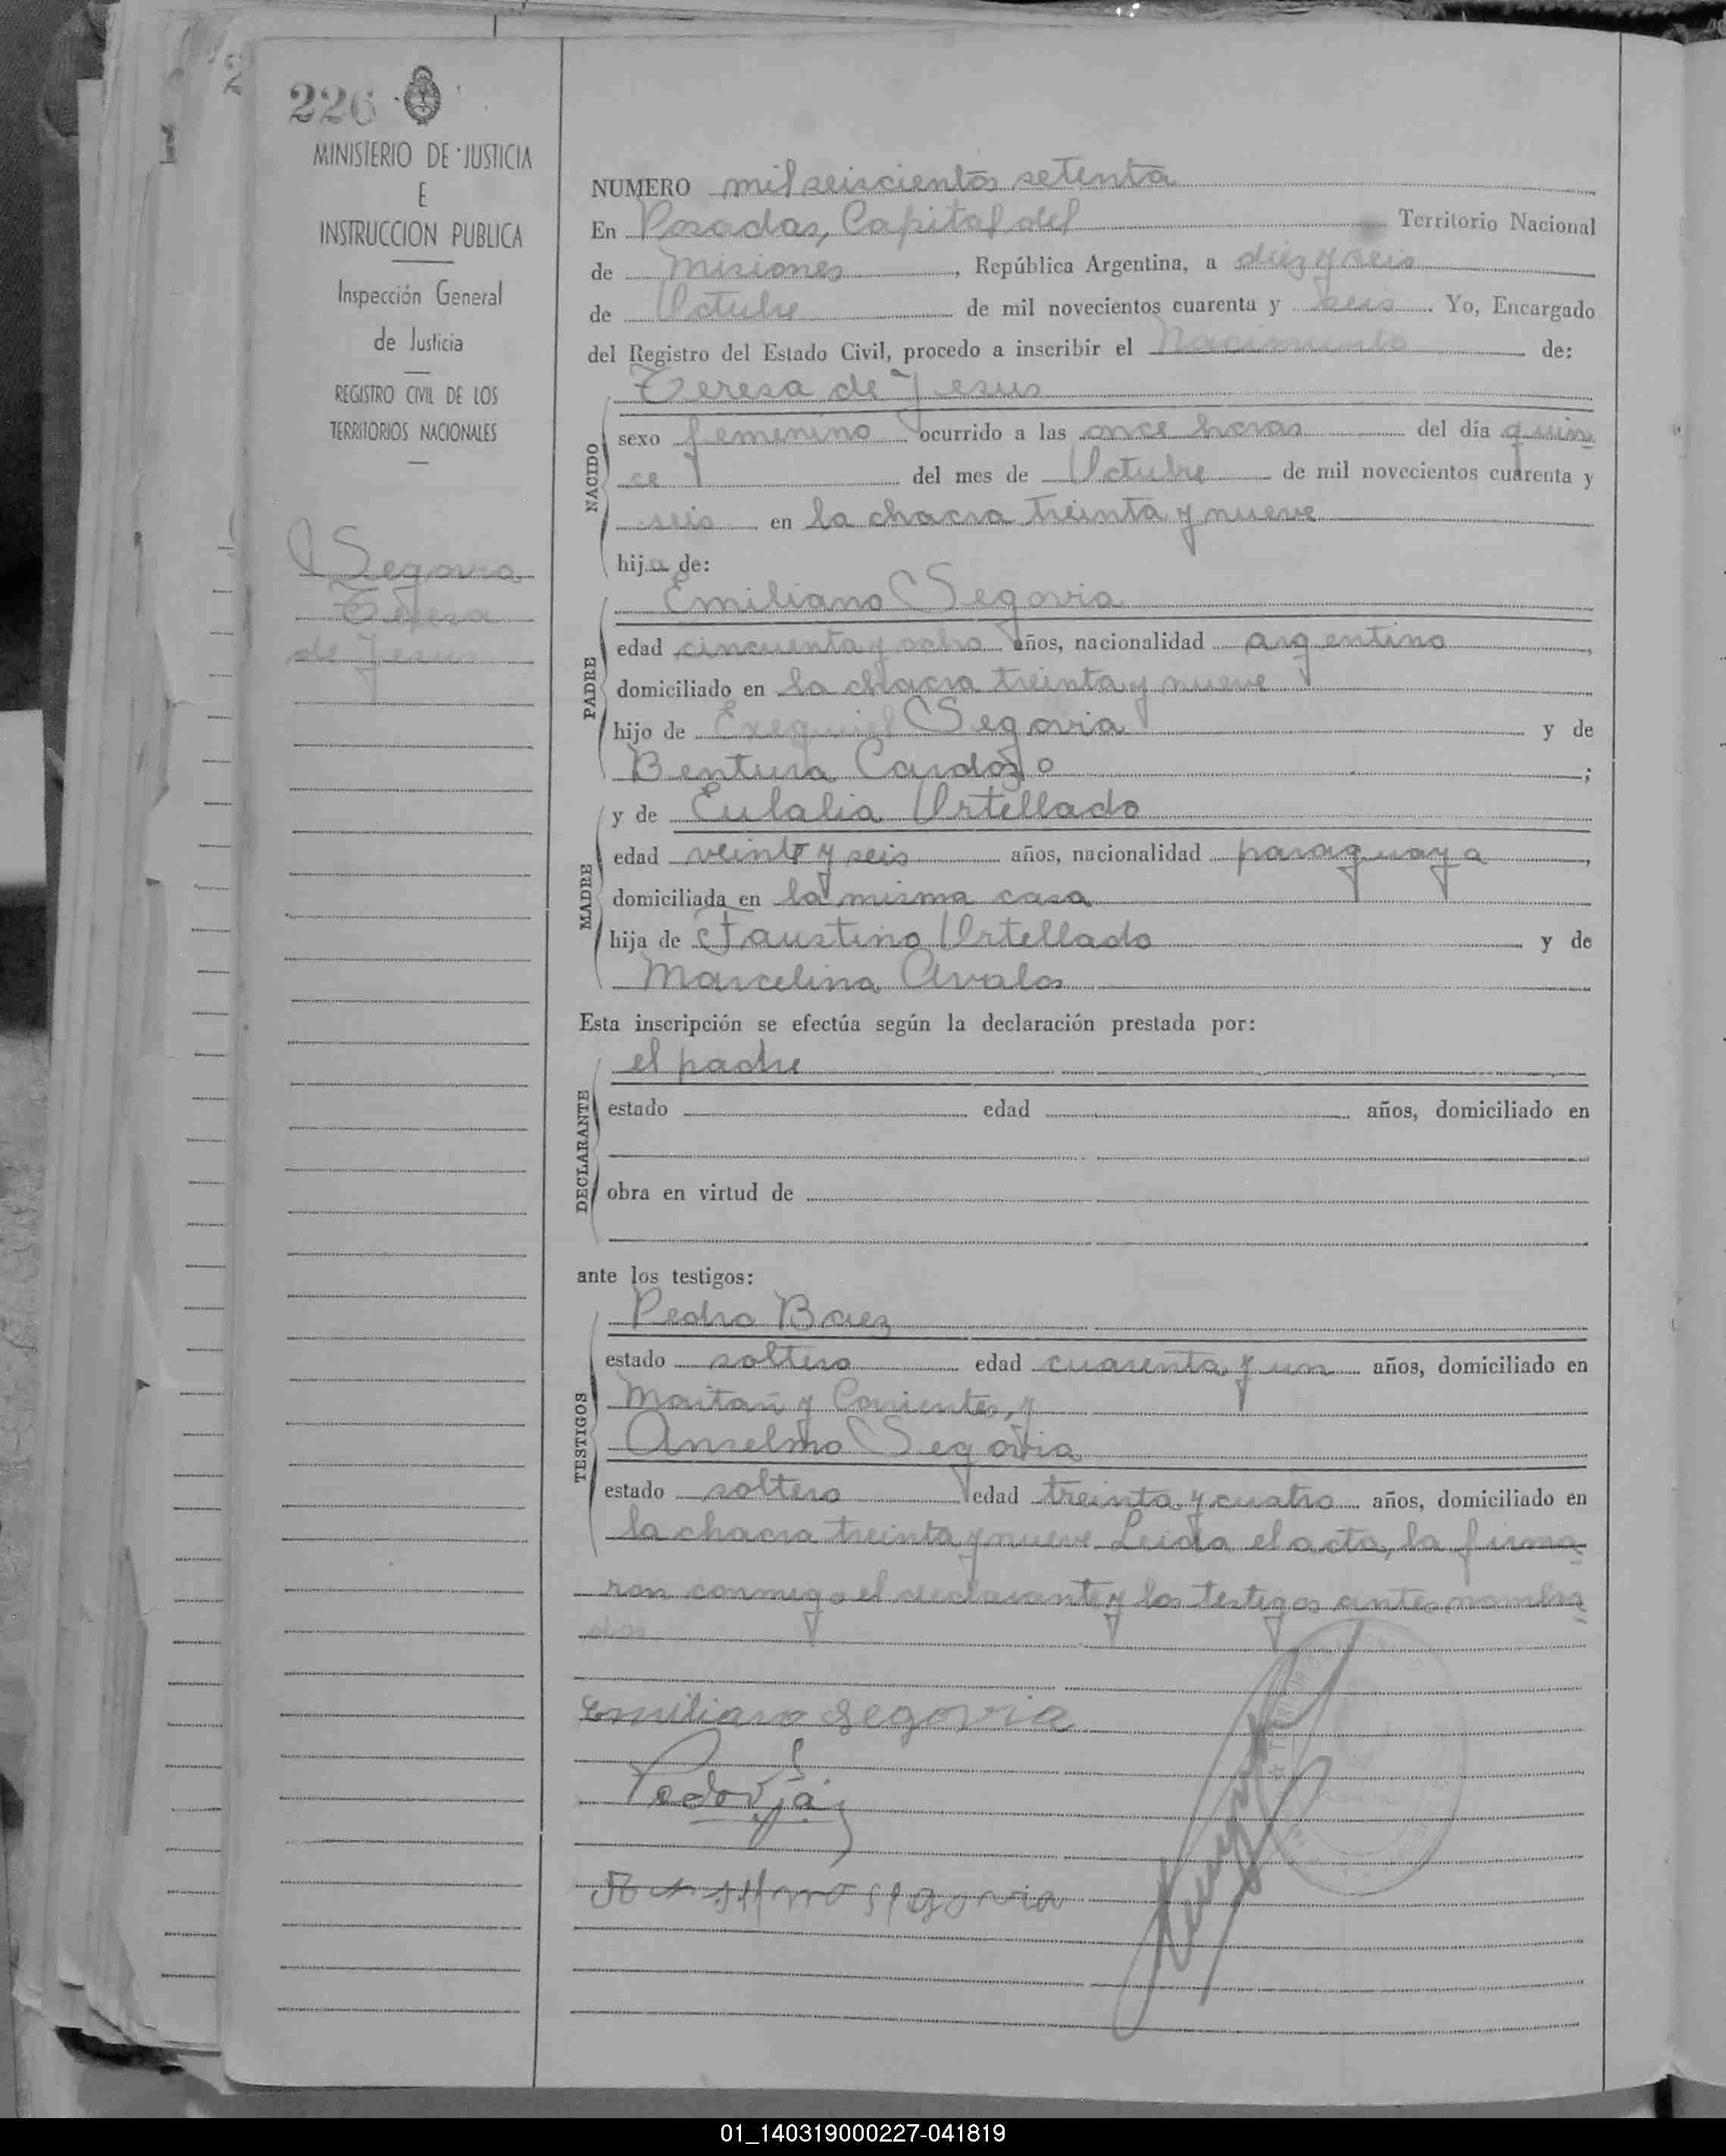 226
MINISTERIO DE JUSTICIA
E
INSTRUCCION PUBLICA
Inspección General
de Justicia
REGISTRO CIVIL DE LOS
TERRITORIOS NACIONALES
Segovia
Teresa
de Jesus
NUMERO mil seiscientos setenta
En Posadas, Capital del Territorio Nacional
de Misiones, República Argentina, a diez y seis
de Octubre de mil novecientos cuarenta y seis. Yo, Encargado
del Registro del Estado Civil, procedo a inscribir el Nacimiento de:
Teresa de Jesus
NACIDO
sexo femenino ocurrido a las once horas del día quin
ce del mes de Octubre de mil novecientos cuarenta y
seis en la chacra treinta y nueve
hija de:
Emiliano Segovia
PADRE
edad cincuenta y ocho años, nacionalidad argentino,
domiciliado en la chacra treinta y nueve
hijo de Exequiel Segovia y de
Bentura Cardozo;
y de Eulalia Ortellado
MADRE
edad veinte y seis años, nacionalidad paraguaya,
domiciliada en la misma casa
hija de Faustino Ortellado y de
Marcelina Avalos
Esta inscripción se efectúa según la declaración prestada por:
el padre
DECLARANTE
estado edad años, domiciliado en
obra en virtud de
ante los testigos:
Pedro Baez
TESTIGOS
estado soltero edad cuarenta y un años, domiciliado en
y Corrientes, y
Anselmo Segovia
estado soltero edad treinta y cuatro años, domiciliado en
la chacra treinta y nueve Leida el acta, la firma
ron conmigo el declarante y los testigos antes nombra
dos
emiliano segovia
segovia
01_140319000227-041819